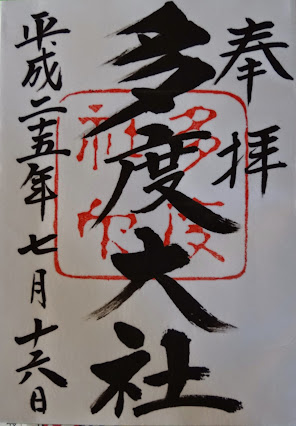 奉拝
多度大社
平成二十五年七月十六日